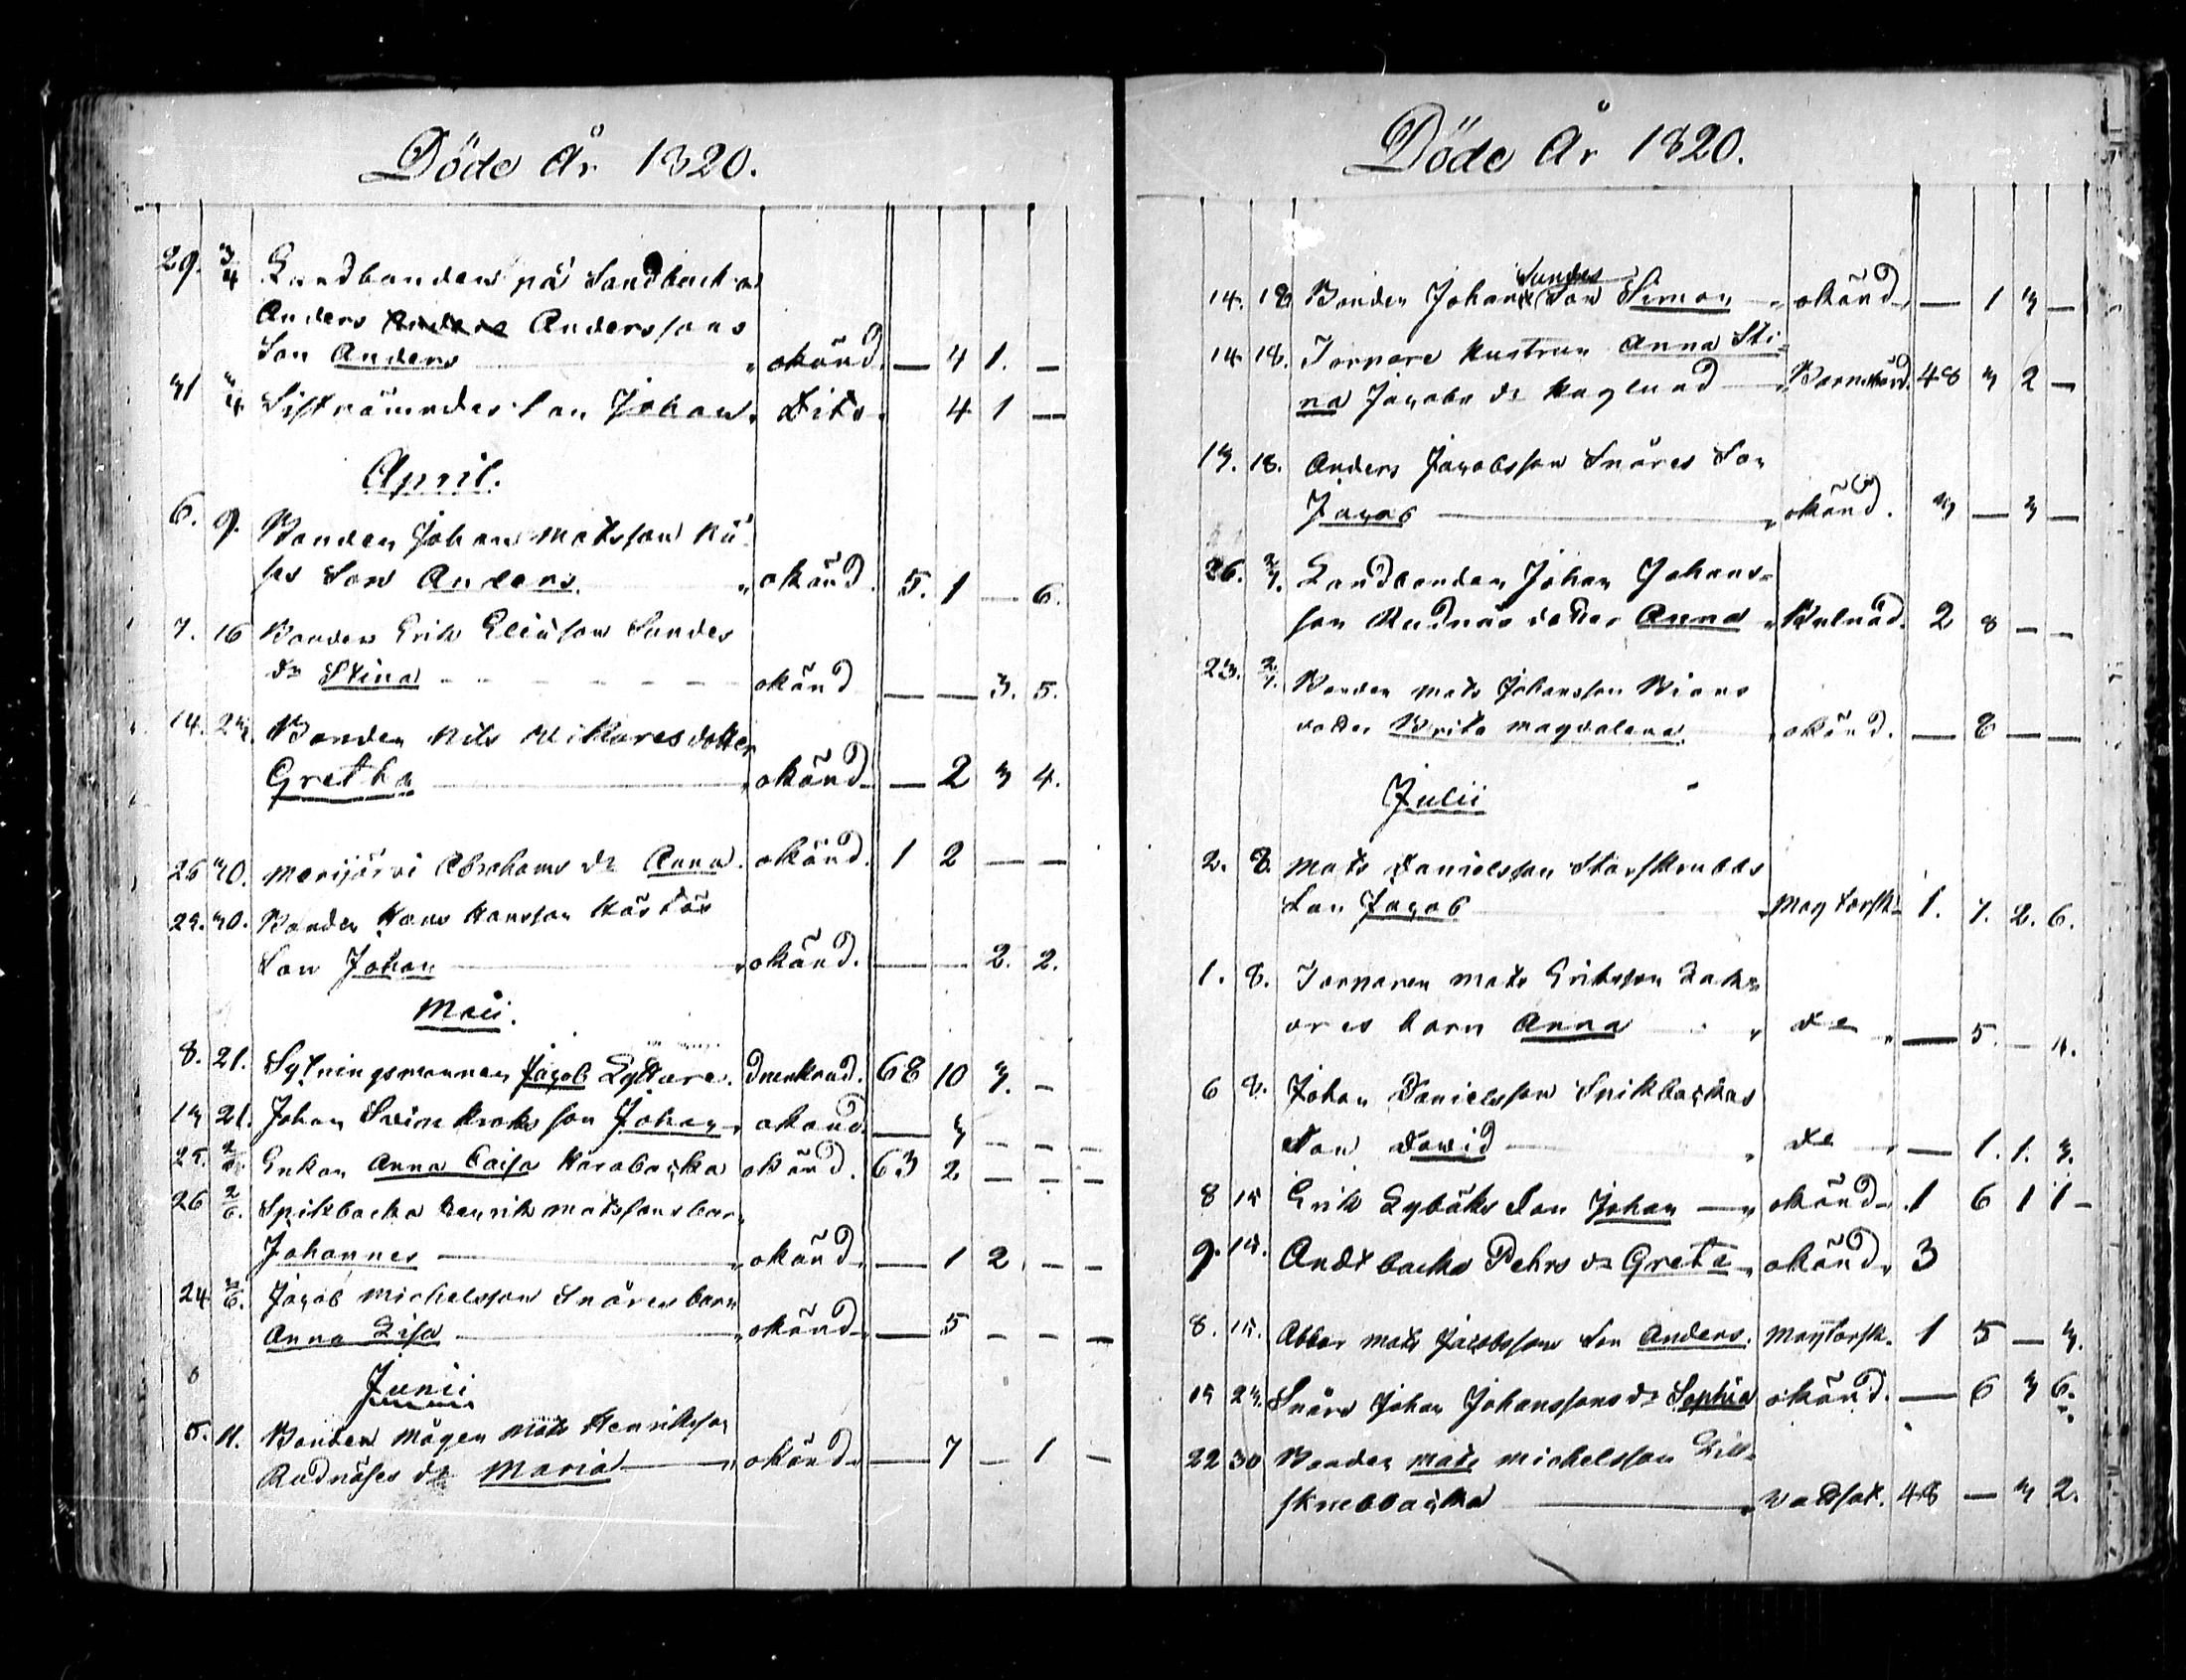 Döde År 1820.
29. 3/4 Landbonden på Sandbacka
Anders Anderssons
Son Anders okänd. — 4 1. —
31 3/4 Sisträmndes son Johan. Dito. 4 1 —
April.
6. 9. Bonden Johan Matsson Kü-
ses Son Anders. okänd. 5. 1 — 6.
7. 16 Bonden Erik Eliasson Sundes
dr Stina okänd — — 3. 5.
14. 23. Bonden Nils Wikares dotter
Gretha okänd. — 2 3 4.
26 30. Marijärvi Abrahams dr Anna. okänd. 1 2 — —
29. 30. Bonden Hans Hansson
Son Johan okänd. — — 2. 2.
Maii.
8. 21. Sytningsmannen Jacob Lyttare. Drunknad. 68 10 3. —
13 21. Johan son Johan okänd. — 3 — — —
25. 2/6. Enkan Anna Caisa Karabacka okänd. 63 2 — — —
26 2/6. Spikbacka Henrik Matssons barn
Johannes okänd. — 1 2. — —
24 2/6. Jacob Michelsson Snåres barn
Anna Lisa okänd. — 5 — — —
Junii
5. 11. Bonden Mågen Mats Henriksson
Rudnäses dr Maria okänd. — 7 — 1 —
Döde År 1820.
Sundes
14. 18 Bonden Johan Son Simon okänd. — 1 3 —
14. 18. Torpare Hustrun Anna Sti-
na Jacobs dr Haglund Barnsbörd. 48 3 2 —
13. 18. Anders Jacobsson Snåres Son
Jacob okänd. 3 — 3 —
26. 2/7. Landbonden Johan Johans-
son Rudnäs dotter Anna 2 8 — —
23. 2/7. Bonden Mats Johansson
dotter Brita Magdalena. okänd. — 8 — —
Julii
2. 8. Mats Danielsson Storskrubbs
Son Jacob Magtorsk. 1. 7. 2. 6.
1. 8. Torparen Mats Eriksson
barn Anna do — 5. — 4.
6 8. Johan Danielsson Spikbackas
Son David do — 1. 1. 3.
8 15 Erik Lybäks Son Johan okänd. 1 6 1 1 —
9. 15. Andtbacka Pehrs dr Greta okänd. 3
8. 15. Abbor Mats Jacobsson Son Anders. Magtorsk. 1 5 — 3.
15 23. Snåre Johan Johanssons dr Sophia okänd. — 6 3 6.
22 30 Bonden Mats Michelsson Lill-
skrubbacka Wattsot. 48 — 3 2.